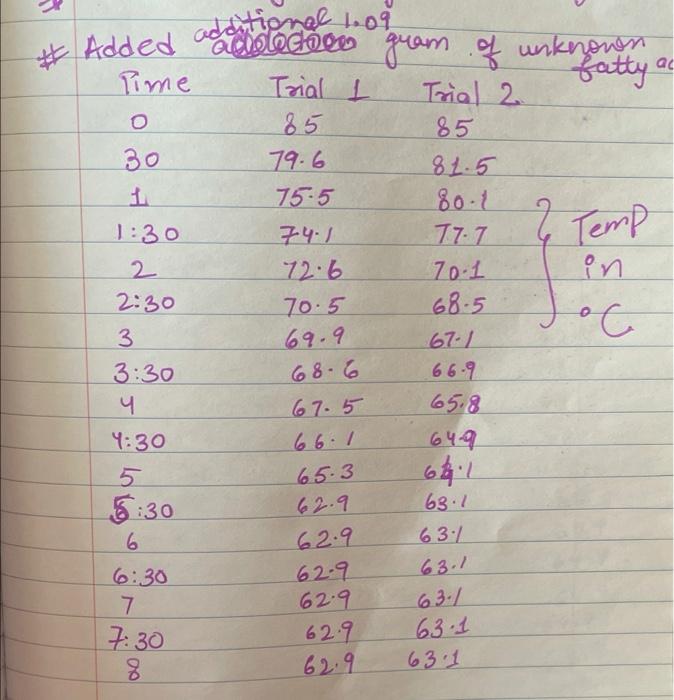 # Added additional 1.09 gram of unknown
fatty ac
Time Trial 1 Trial 2
0 85 85
30 79.6 81.5
1 75.5 80.1
1:30 74.1 77.7
2 72.6 70.1
2:30 70.5 68.5
3 69.9 67.1
3:30 68.6 66.9
4 67.5 65.8
4:30 66.1 64.9
5 65.3 64.1
5:30 62.9 63.1
6 62.9 63.1
6:30 62.9 63.1
7 62.9 63.1
7:30 62.9 63.1
8 62.9 63.1
} Temp
in
°C